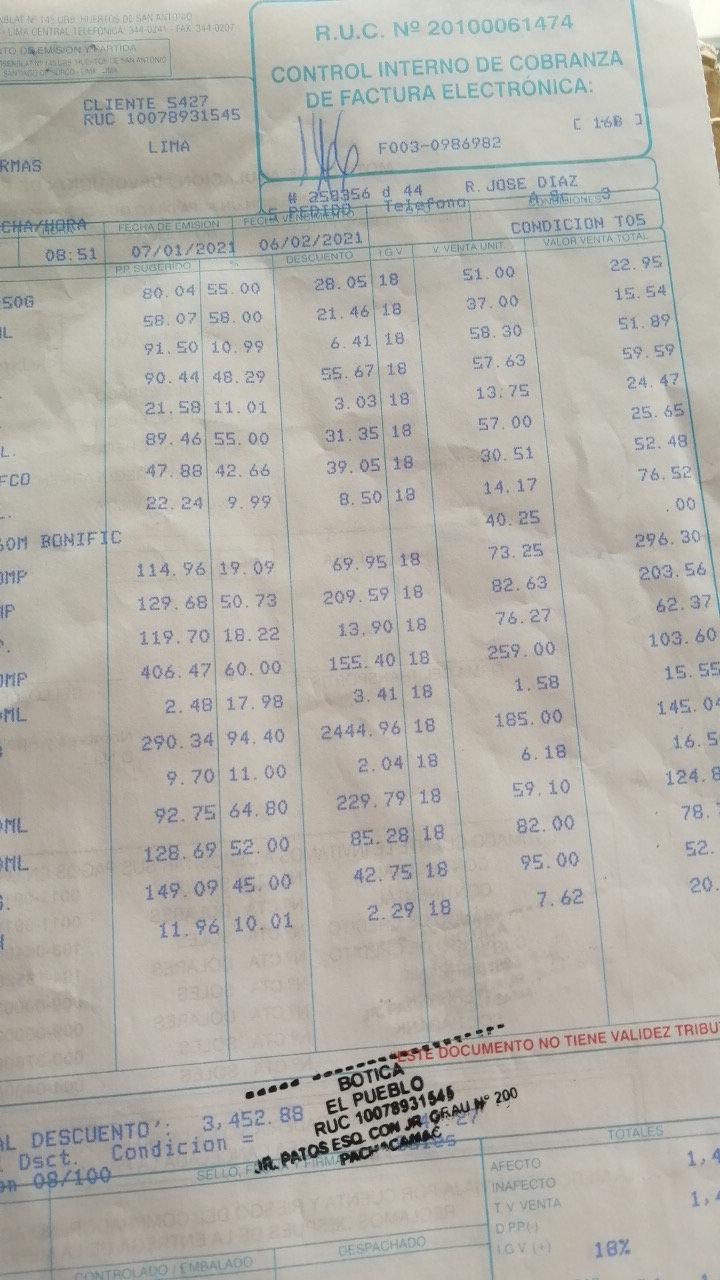 R.U.C. Nº 20100061474
CONTROL INTERNO DE COBRANZA
DE FACTURA ELECTRÓNICA:
[ 16B ]
F003-0986982
NSBLAT Nº 145 URB. HUERTOS DE SAN ANTONIO
LIMA CENTRAL TELEFONICA: 344-0241 - FAX: 344-0207
TO DE EMISION Y PARTIDA
CLIENTE 5427
RUC 10078931545
LIMA
RMAS
# 258356 d 44 R. JOSE DIAZ
Telefono
CONDICIONES
CHA/HORA FECHA DE EMISION
08:51 07/01/2021 06/02/2021 CONDICION T05
P.P. SUGERIDO % DESCUENTO I G V V. VENTA UNIT. VALOR VENTA TOTAL
50G 80.04 55.00 28.05 18 51.00 22.95
L 58.07 58.00 21.46 18 37.00 15.54
91.50 10.99 6.41 18 58.30 51.89
90.44 48.29 55.67 18 57.63 59.59
21.58 11.01 3.03 18 13.75 24.47
L. 89.46 55.00 31.35 18 57.00 25.65
FCO 47.88 42.66 39.05 18 30.51 52.48
22.24 9.99 8.50 18 14.17 76.52
OM BONIFIC 40.25 .00
OMP 114.96 19.09 69.95 18 73.25 296.30
MP 129.68 50.73 209.59 18 82.63 203.56
119.70 18.22 13.90 18 76.27 62.37
OMP 406.47 60.00 155.40 18 259.00 103.60
OML 2.48 17.98 3.41 18 1.58 15.55
290.34 94.40 2444.96 18 185.00 145.04
9.70 11.00 2.04 18 6.18 16.5
OML 92.75 64.80 229.79 18 59.10 124.8
OML 128.69 52.00 85.28 18 82.00 78.
149.09 45.00 42.75 18 95.00 52.
11.96 10.01 2.29 18 7.62 20.
ESTE DOCUMENTO NO TIENE VALIDEZ TRIBU
AL DESCUENTO': 3,452.88
Dsct. Condicion =
on 08/100
BOTICA
EL PUEBLO
RUC 10078931545
JR. PATOS ESQ. CON JR. GRAU Nº 200
PACHACAMAC
TOTALES
AFECTO 1,4
INAFECTO
T V VENTA 1,4
D P.P.(-)
I.G.V (+) 18%
CONTROLADO / EMBALADO
DESPACHADO